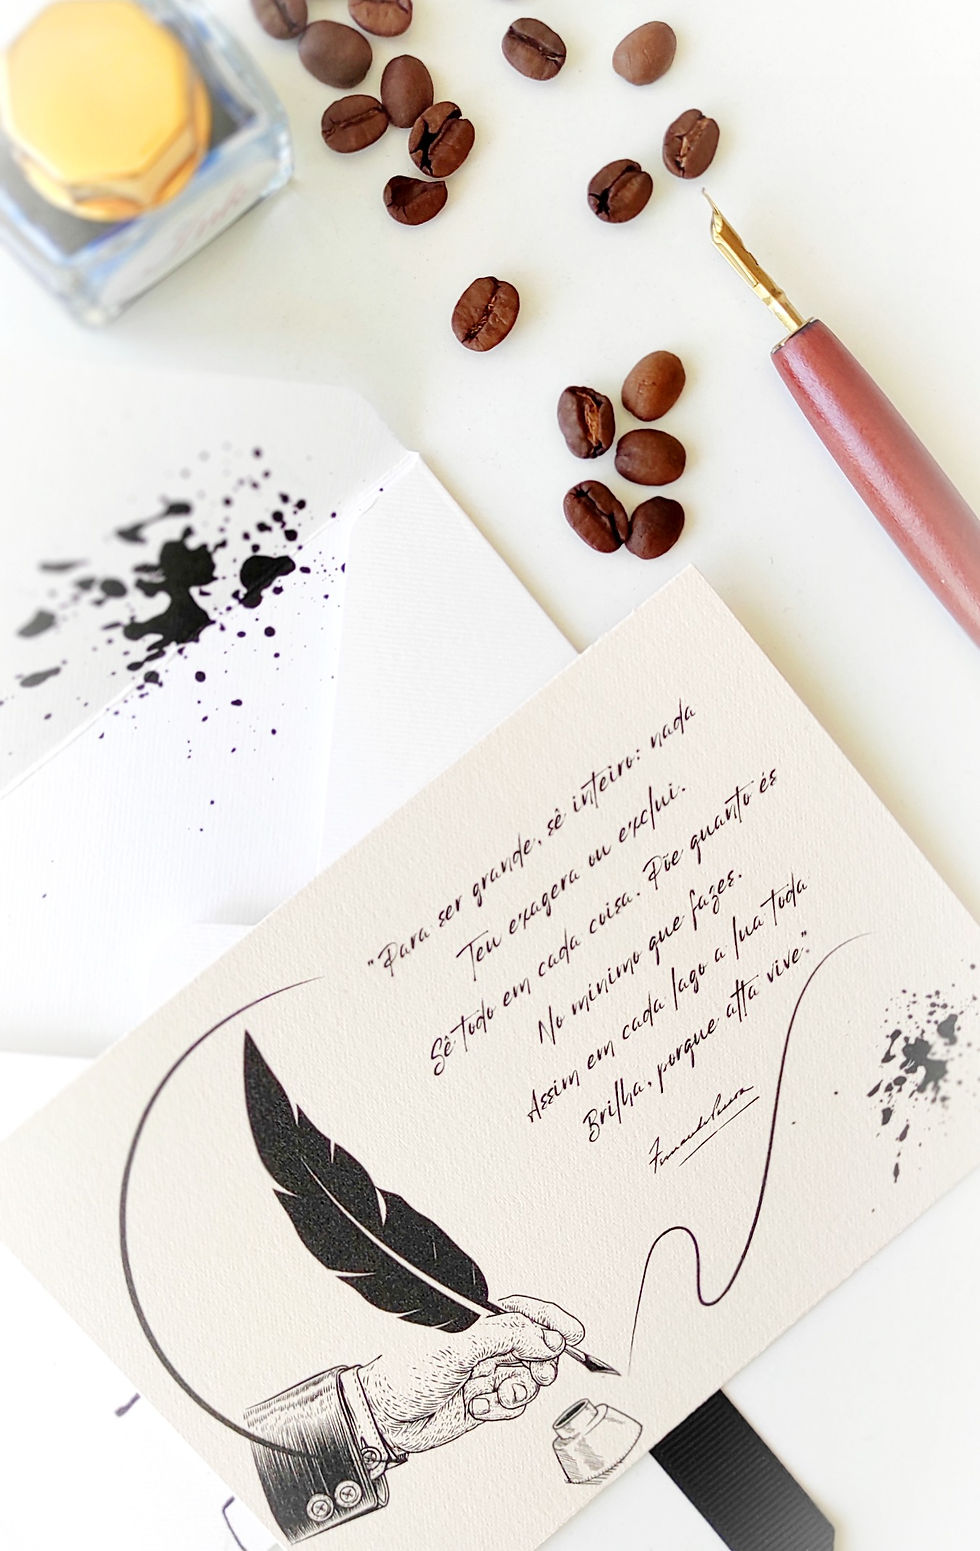 "Para ser grande, sê inteiro: nada
Teu exagera ou exclui.
Sê todo em cada coisa. Põe quanto és
No mínimo que fazes.
Assim em cada lago a lua toda
Brilha, porque alta vive."
Fernando Pessoa
Ink